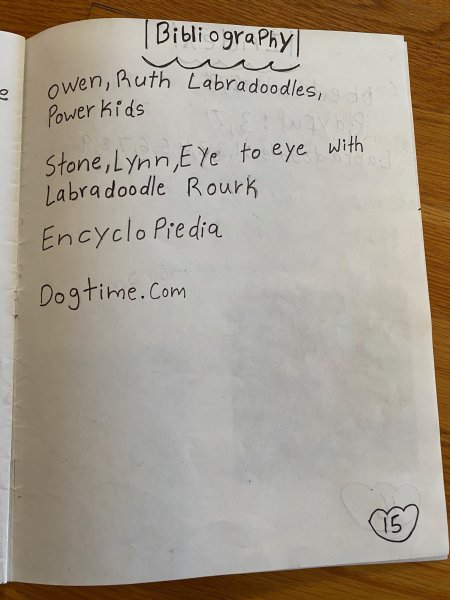 BibliograPhy
owen, Ruth Labradoodles,
Power Kids
Stone, Lynn, EYe to eye with
Labradoodle Rourk
EncycloPiedia
Dogtime.Com
15